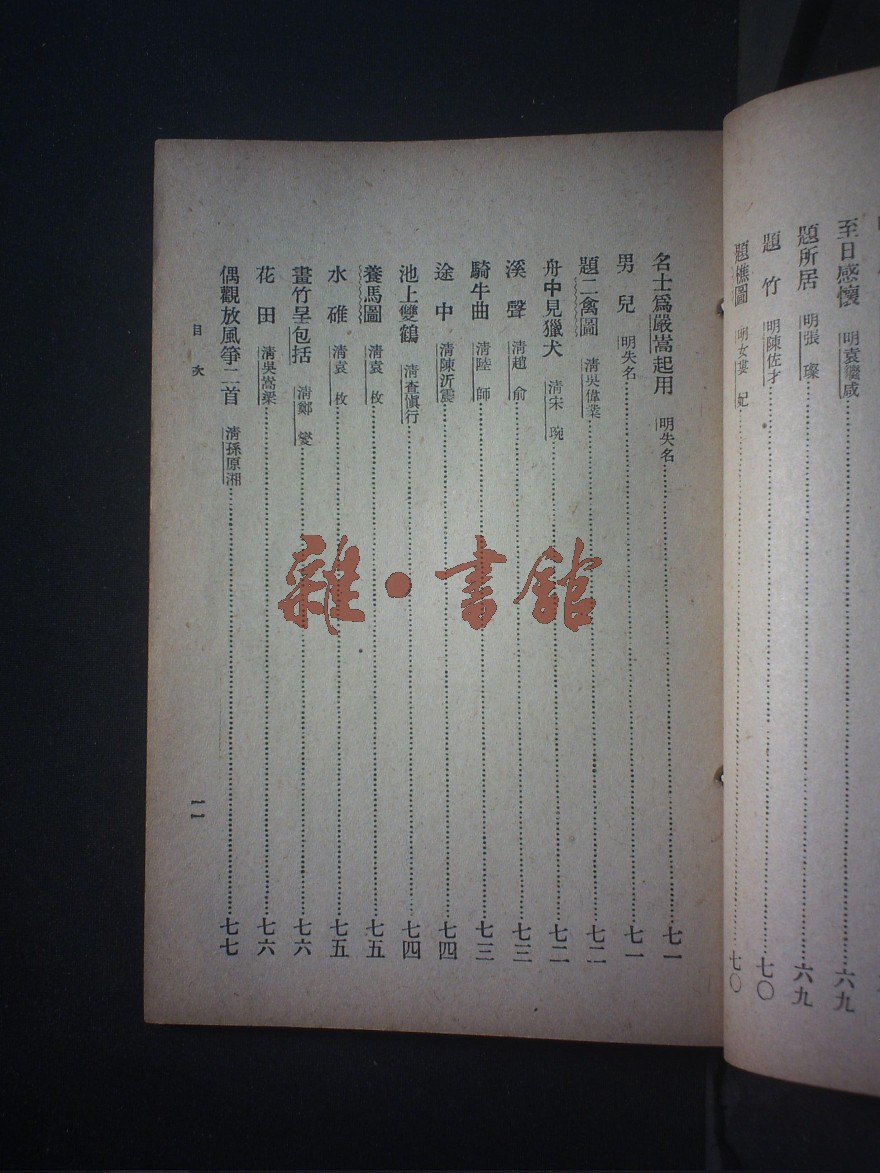 至日感懷 明袁繼咸 六九
題所居 明張璨 六九
題竹 明陳佐才 七〇
題樵圖 明女婁妃 七〇
名士爲嚴嵩起用 明失名 七一
男兒 明失名 七一
題二禽圖 清吳偉業 七二
舟中見獵犬 清宋琬 七二
溪聲 清趙俞 七三
騎牛曲 清陸師 七三
途中 清陳沂震 七四
池上雙鶴 清查慎行 七四
養馬圖 清袁枚 七五
水碓 清袁枚 七五
畫竹呈包括 清鄭燮 七六
花田 清吳嵩梁 七六
偶觀放風箏二首 清孫原湘 七七
目次 一一
雜·書館